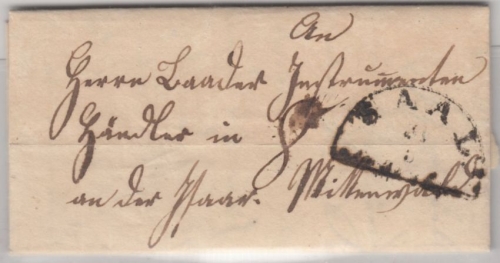 An
Herrn Baader Instrumenten
Händler in
an der Isaar. Mittenwald